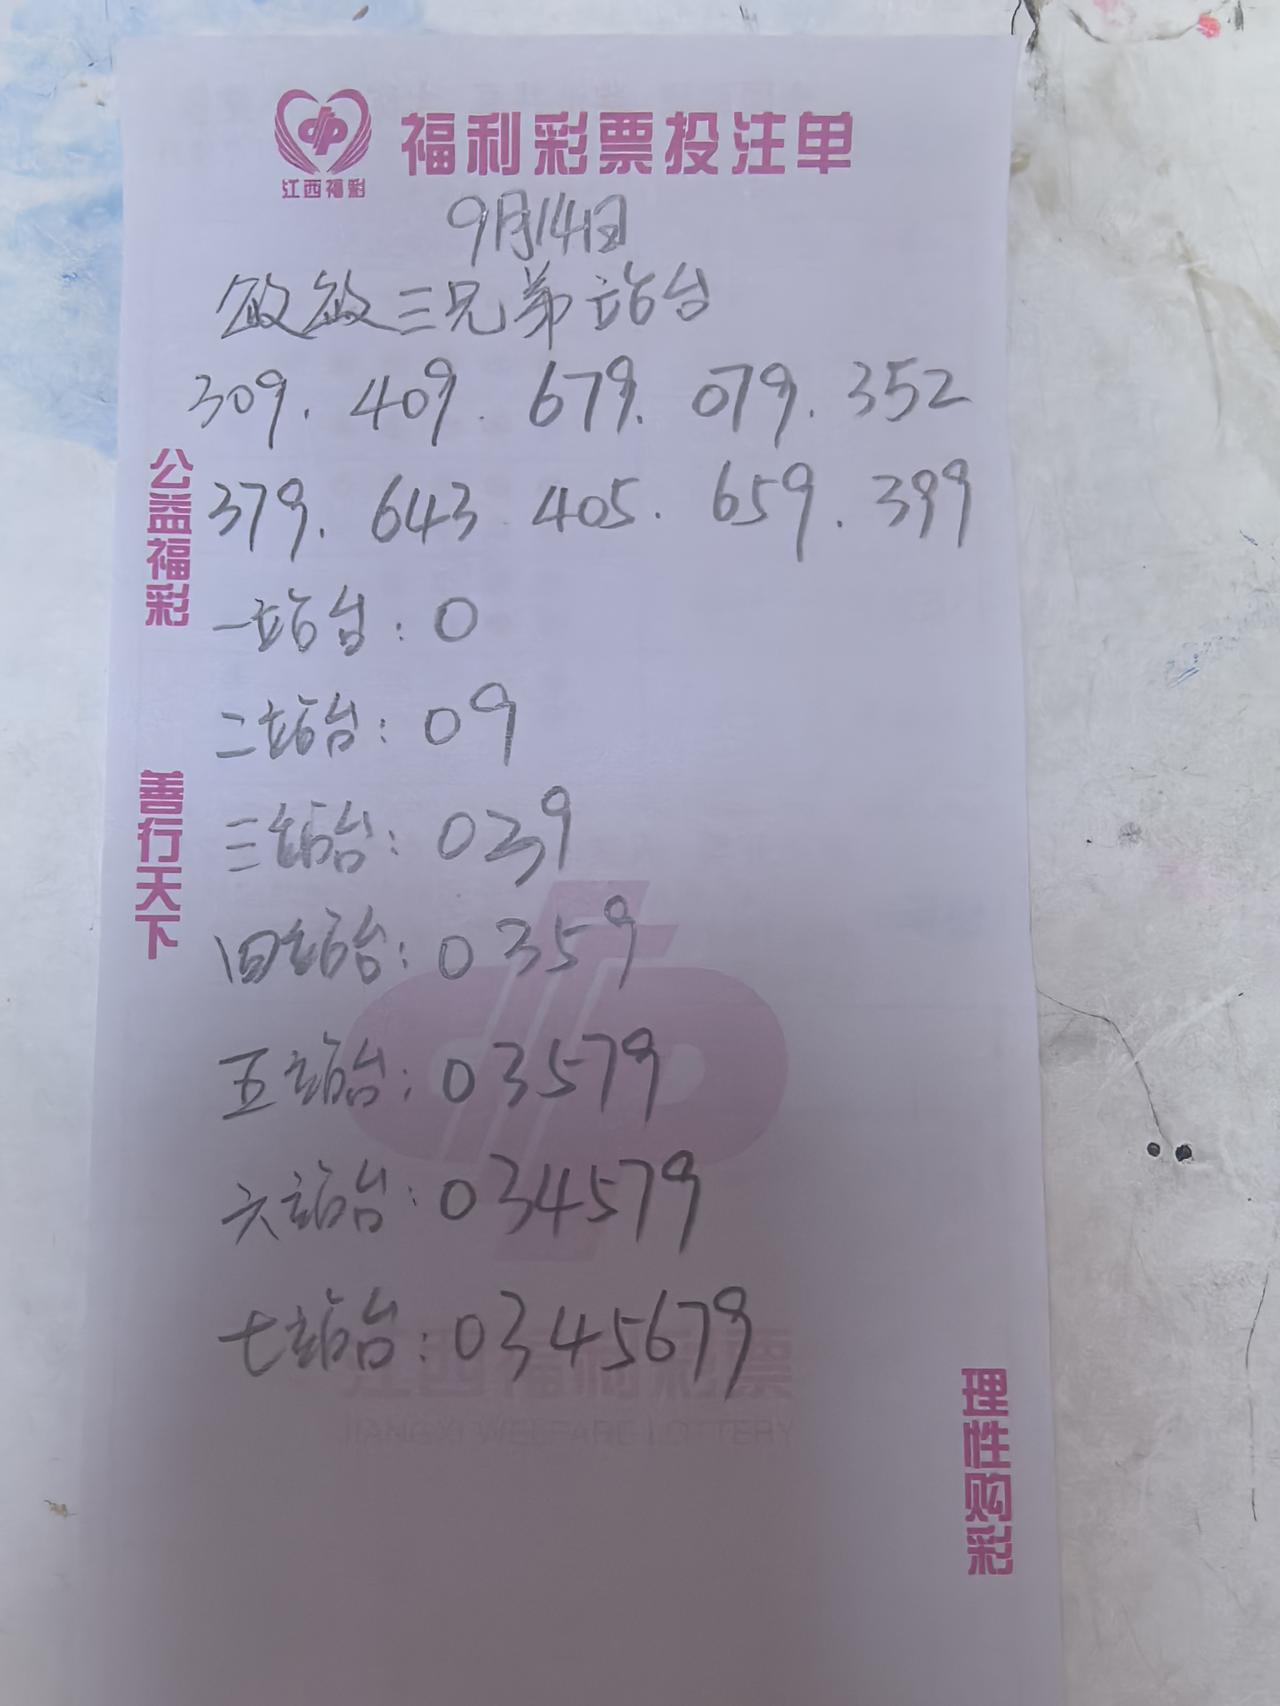 江西福彩
福利彩票投注单
9月14日
敏敏三兄弟站台
309. 409. 679. 079. 352
379. 643 405. 659. 399
一站台: 0
二站台: 09
三站台: 039
四站台: 0359
五站台: 03579
六站台: 034579
七站台: 0345679
公益福彩
善行天下
江西福利彩票
JIANGXI WELFARE LOTTERY
理性购彩